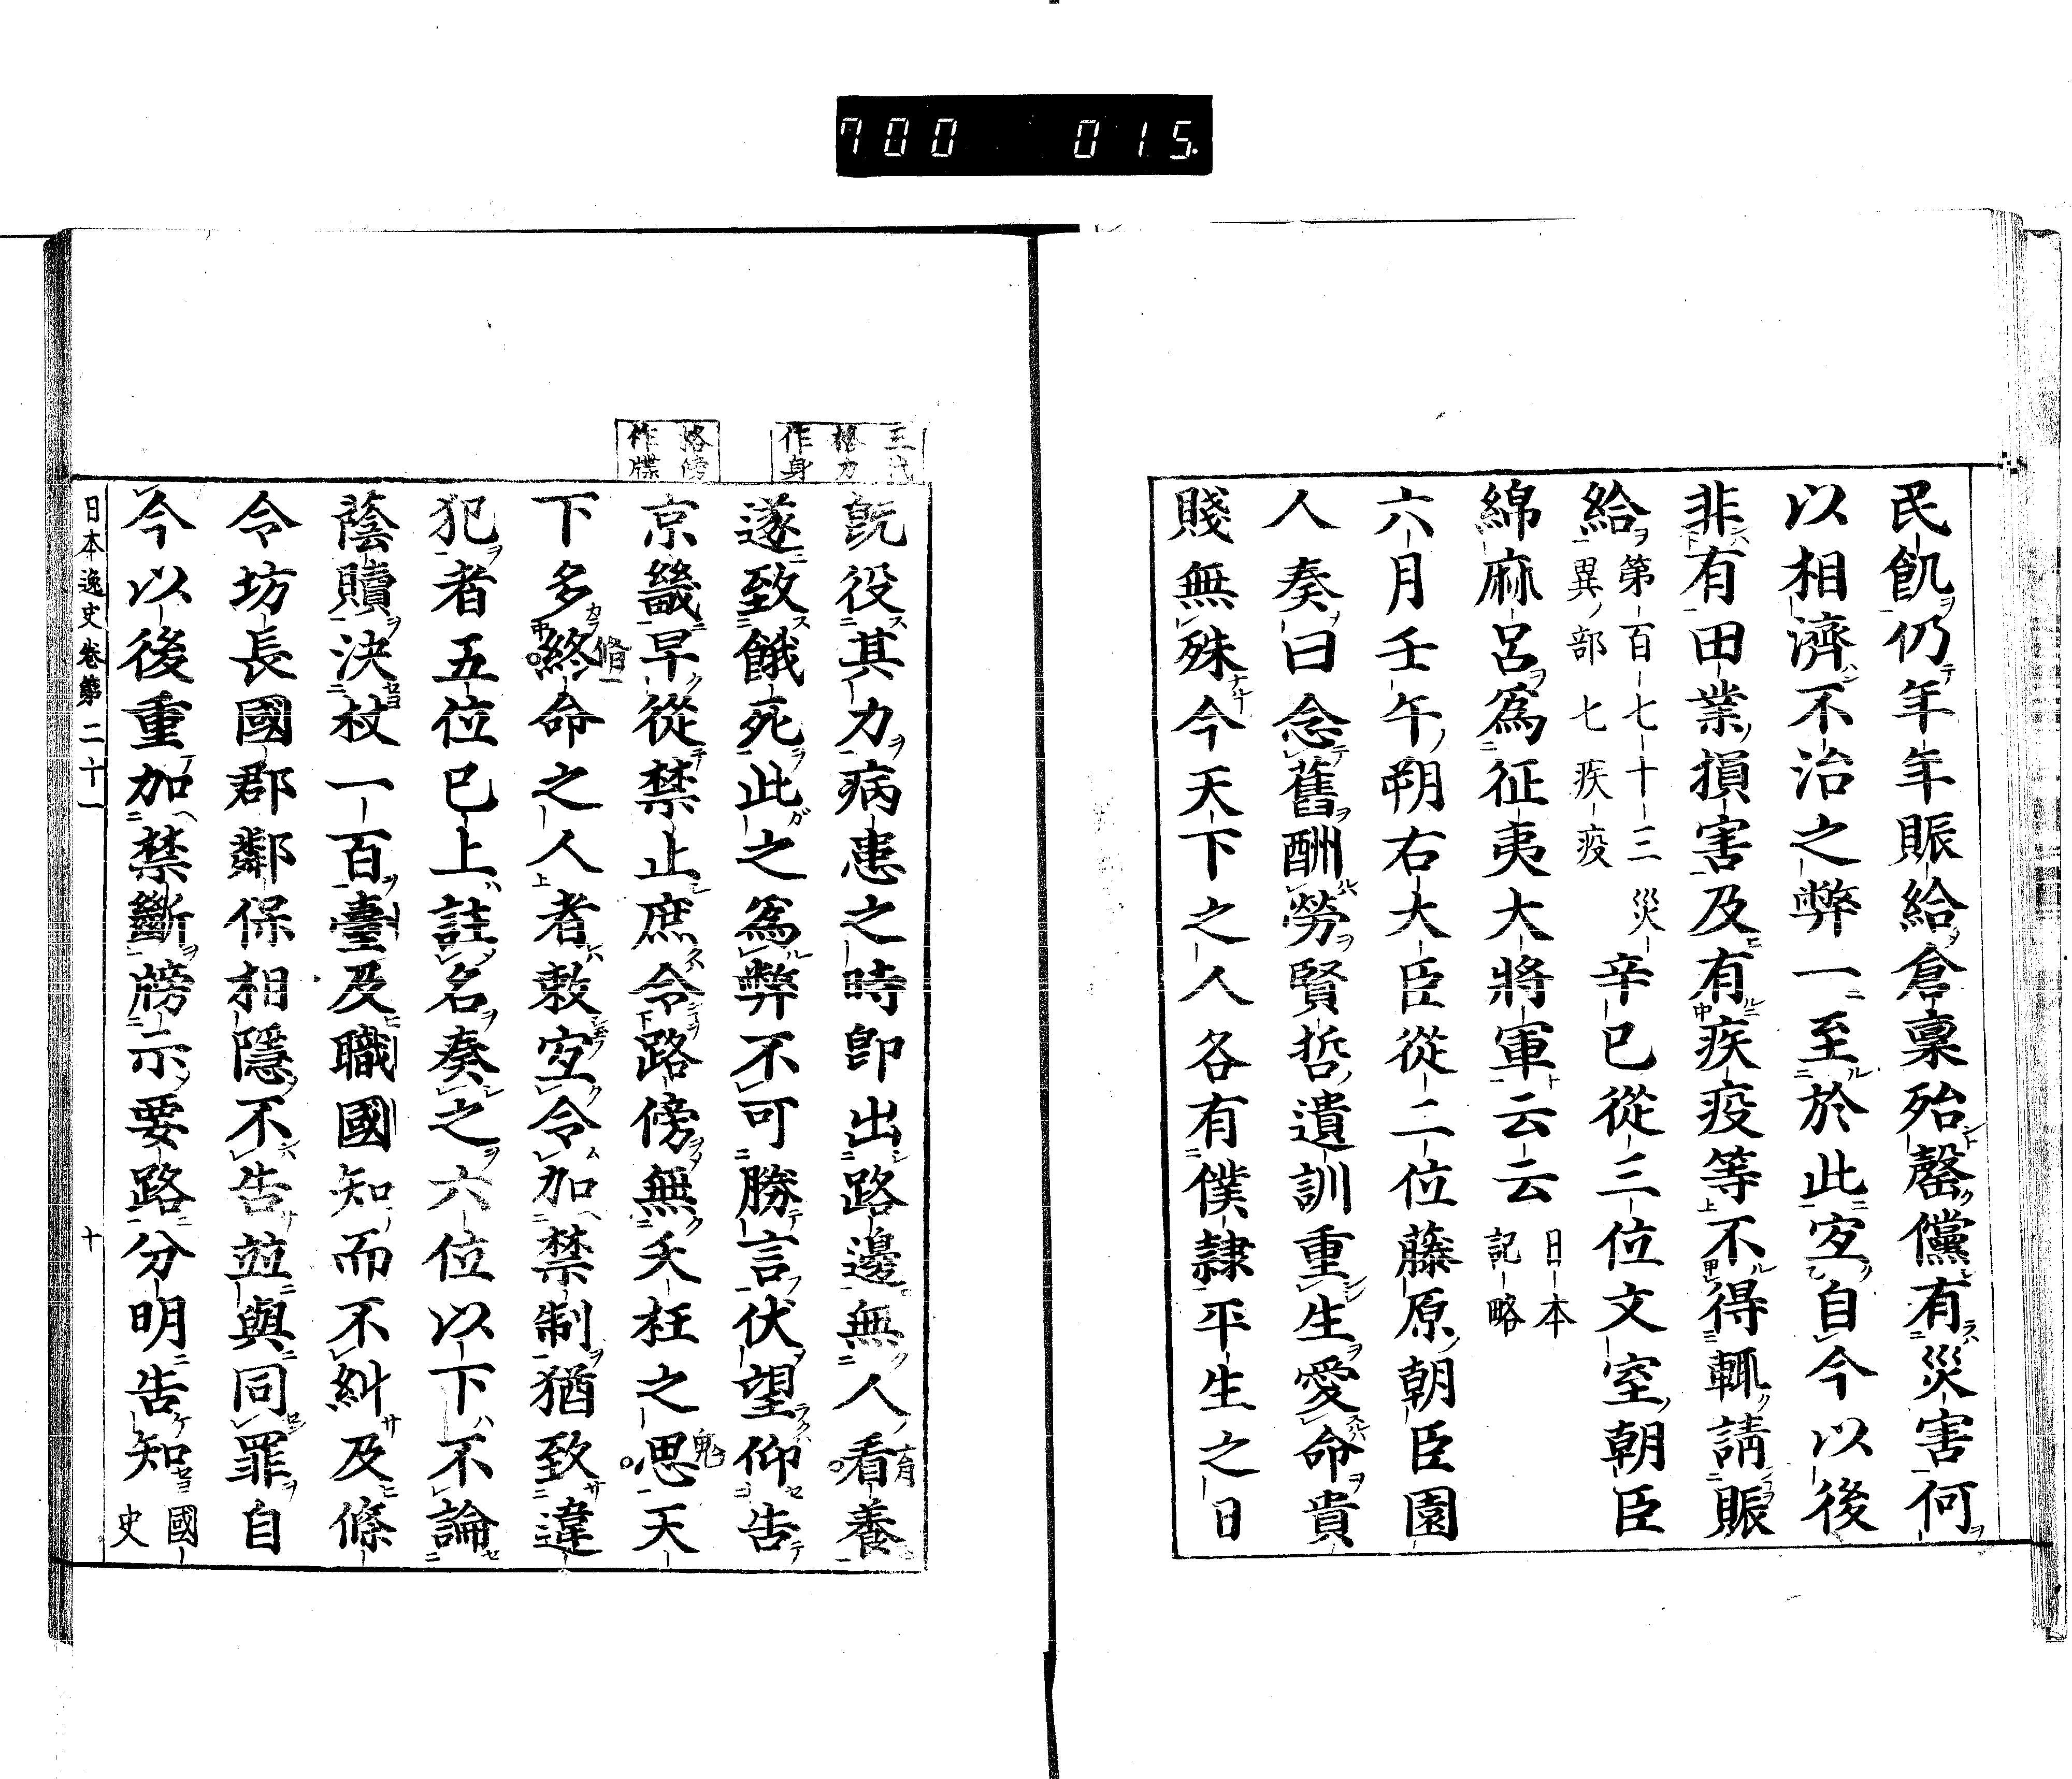 700 015
民飢仍年年賑給倉稟殆罄儻有災害何
以相濟不治之弊一至於此宜自今以後
非有田業損害及有疾疫等不得輒請賑
給第百七十三災異部七疾疫辛巳從三位文室朝臣
綿麻呂爲征夷大將軍云云日本記略
六月壬午朔右大臣從二位藤原朝臣園
人奏曰念舊酬勞賢哲遺訓重生愛命貴
賤無殊今天下之人各有僕隷平生之日
三代格力作身
格傍作牒
既役其力病患之時卽出路邊無人看養
遂致餓死此之爲弊不可勝言伏望仰告
京畿早從禁止庶令路傍無夭枉之思天
下多終命之人者敕宜令加禁制猶致違
犯者五位已上註名奏之六位以下不論
蔭贖決杖一百臺及職國知而不糾及條
令坊長國郡鄰保相隱不告並與同罪自
今以後重加禁斷牓示要路分明告知國史
日本逸史卷第二十一 十